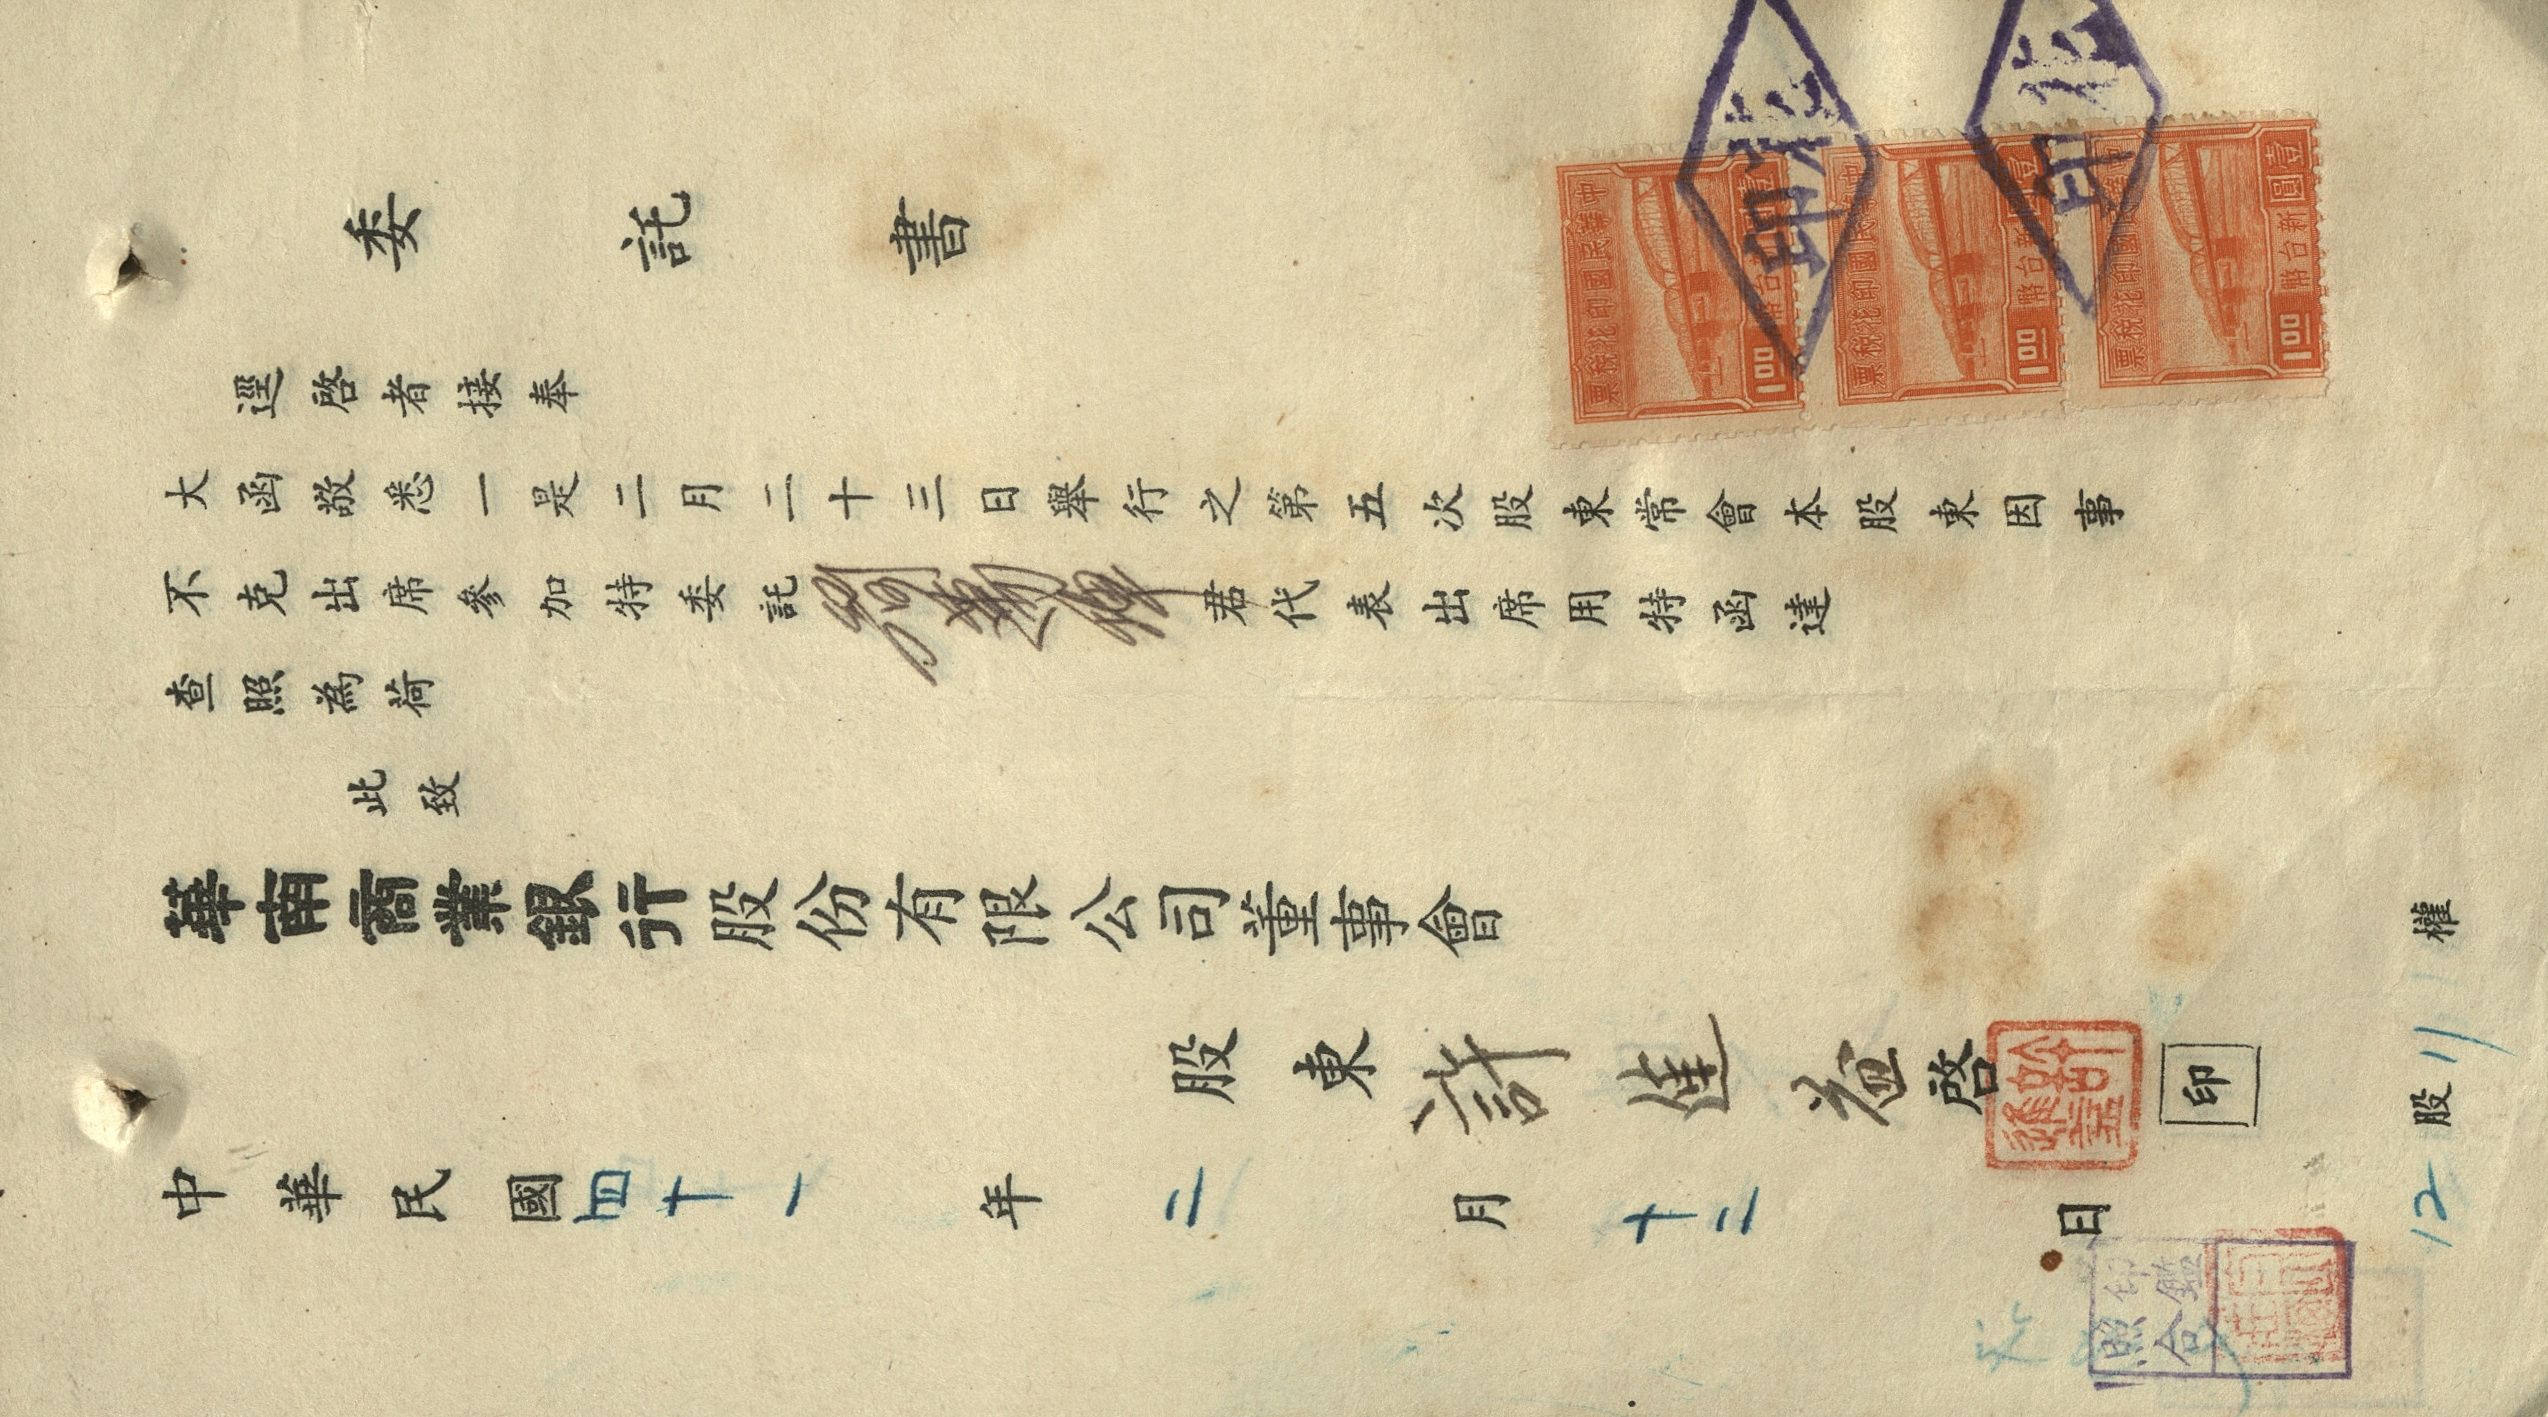 委託書
逕啓者接奉
大函敬悉一是二月二十三日舉行之第五次股東常會本股東因事
不克出席參加特委託 君代表出席用特函達
查照為荷
此致
華南商業銀行股份有限公司董事會
股東許進益啓
印
中華民國四十一年二月十二日
12股11權
中華民國印花稅票
壹圓新台幣
1.00
中華民國印花稅票
壹圓新台幣
1.00
中華民國印花稅票
壹圓新台幣
1.00
印鑑
照合